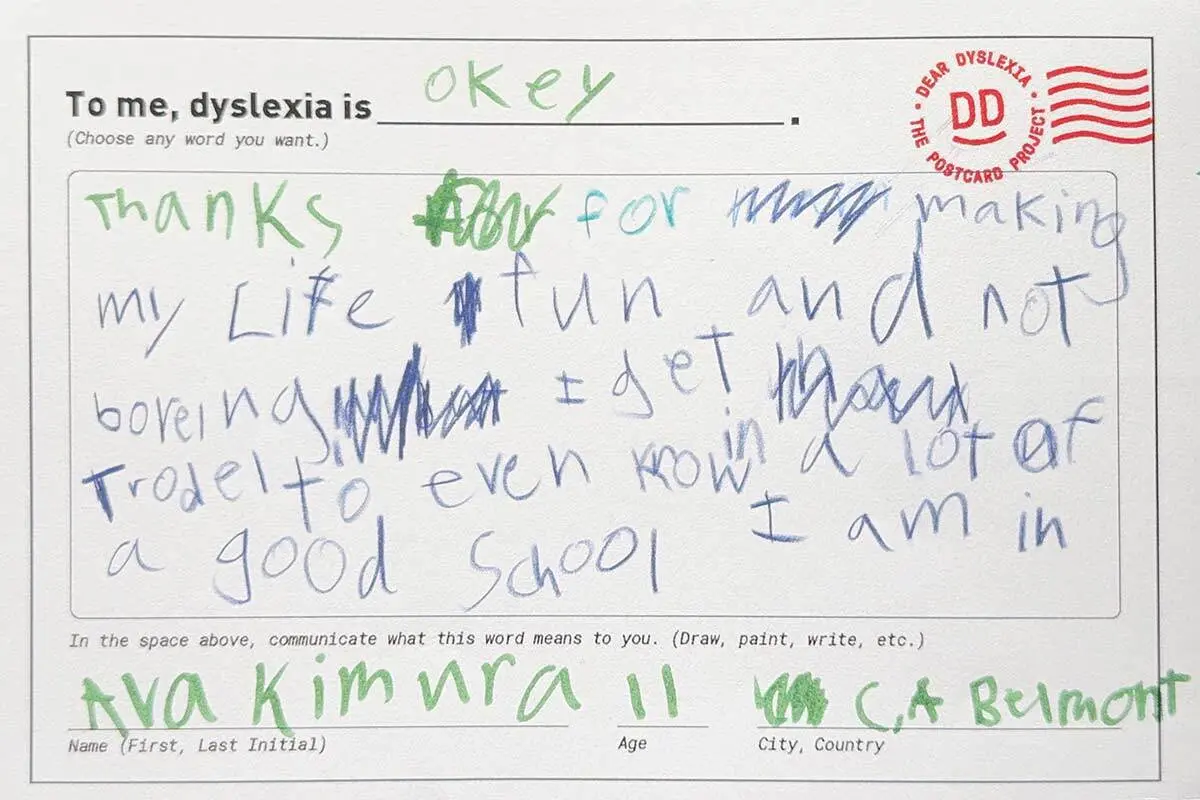 To me, dyslexia is okey.
(Choose any word you want.)
DEAR DYSLEXIA • THE POSTCARD PROJECT •
DD
Thanks for making
my Life fun and not
boreing I get in a lot of
Trodel to even know I am in
a good School
In the space above, communicate what this word means to you. (Draw, paint, write, etc.)
Ava Kimura 11 C,A Belmont
Name (First, Last Initial) Age City, Country